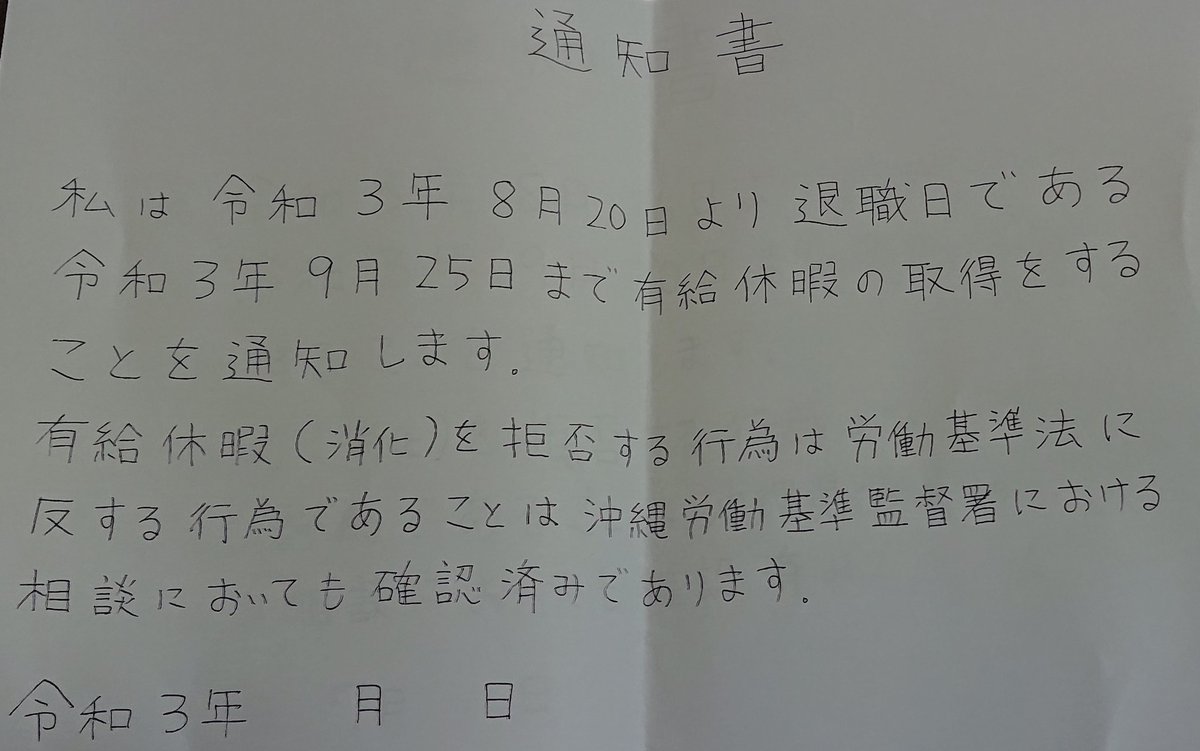 通知書
私は令和3年8月20日より退職日である
令和3年9月25日まで有給休暇の取得をする
ことを通知します.
有給休暇(消化)を拒否する行為は労働基準法に
反する行為であることは沖縄労働基準監督署における
相談においても確認済みであります.
令和3年 月 日